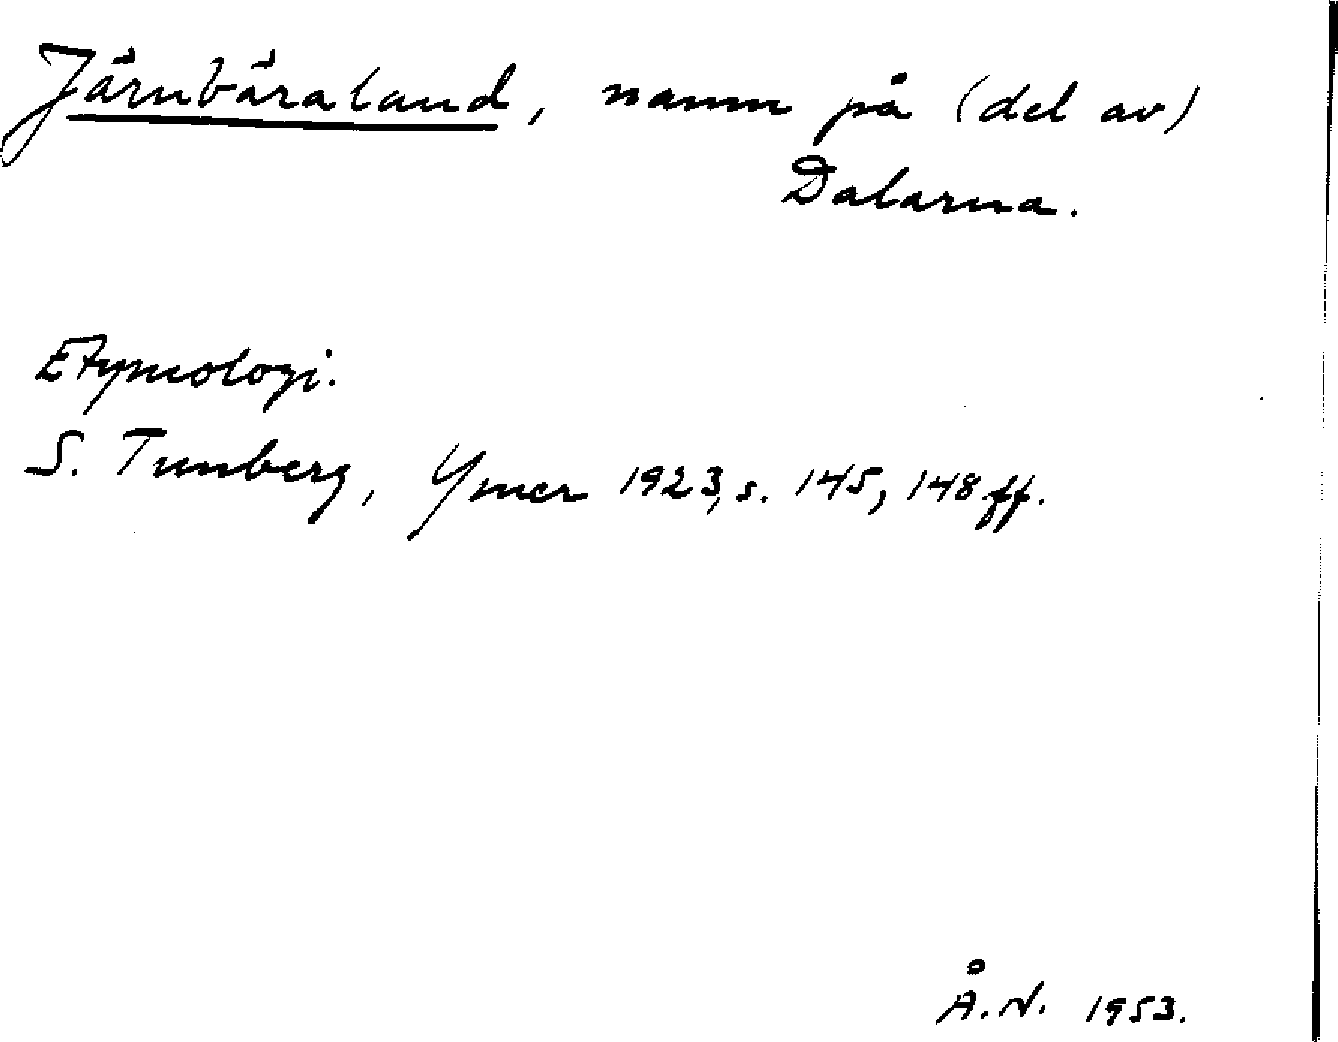 Järnbäraland, namn på (del av)
Dalarna.
Etymologi.
S. Tunberg, Ymer 1923, s. 145, 148 ff.
Å.N. 1953.